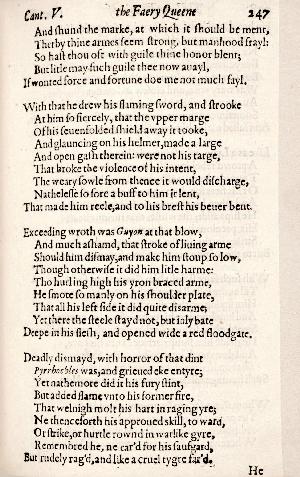 Cant. V. the Faery Queene 247
And shund the marke, at which it should be ment,
Therby thine armes seem strong, but manhood frayl:
So hast thou oft with guile thine honor blent;
But litle may such guile thee now auayl,
If wonted force and fortune doe me not much fayl.
With that he drew his flaming sword, and strooke
At him so fiercely, that the vpper marge
Of his seuenfolded shield away it tooke,
And glauncing on his helmet, made a large
And open gash therein: were not his targe,
That broke the violence of his intent,
The weary sowle from thence it would discharge,
Nathelesse so sore a buff to him it lent,
That made him reele, and to his brest his beuer bent.
Exceeding wroth was Guyon at that blow,
And much ashamd, that stroke of liuing arme
Should him dismay, and make him stoup so low,
Though otherwise it did him litle harme:
Tho hurling high his yron braced arme,
He smote so manly on his shoulder plate,
That all his left side it did quite disarme;
Yet there the steele stayd not, but inly bate
Deepe in his flesh, and opened wide a red floodgate.
Deadly dismayd, with horror of that dint
Pyrrhochles was, and grieued eke entyre;
Yet nathemore did it his fury stint,
But added flame vnto his former fire,
That welnigh molt his hart in raging yre;
Ne thenceforth his approued skill, to ward,
Or strike, or hurtle rownd in warlike gyre,
Remembred he, ne car'd for his saufgard,
But rudely rag'd, and like a cruel tygre far'd.
He